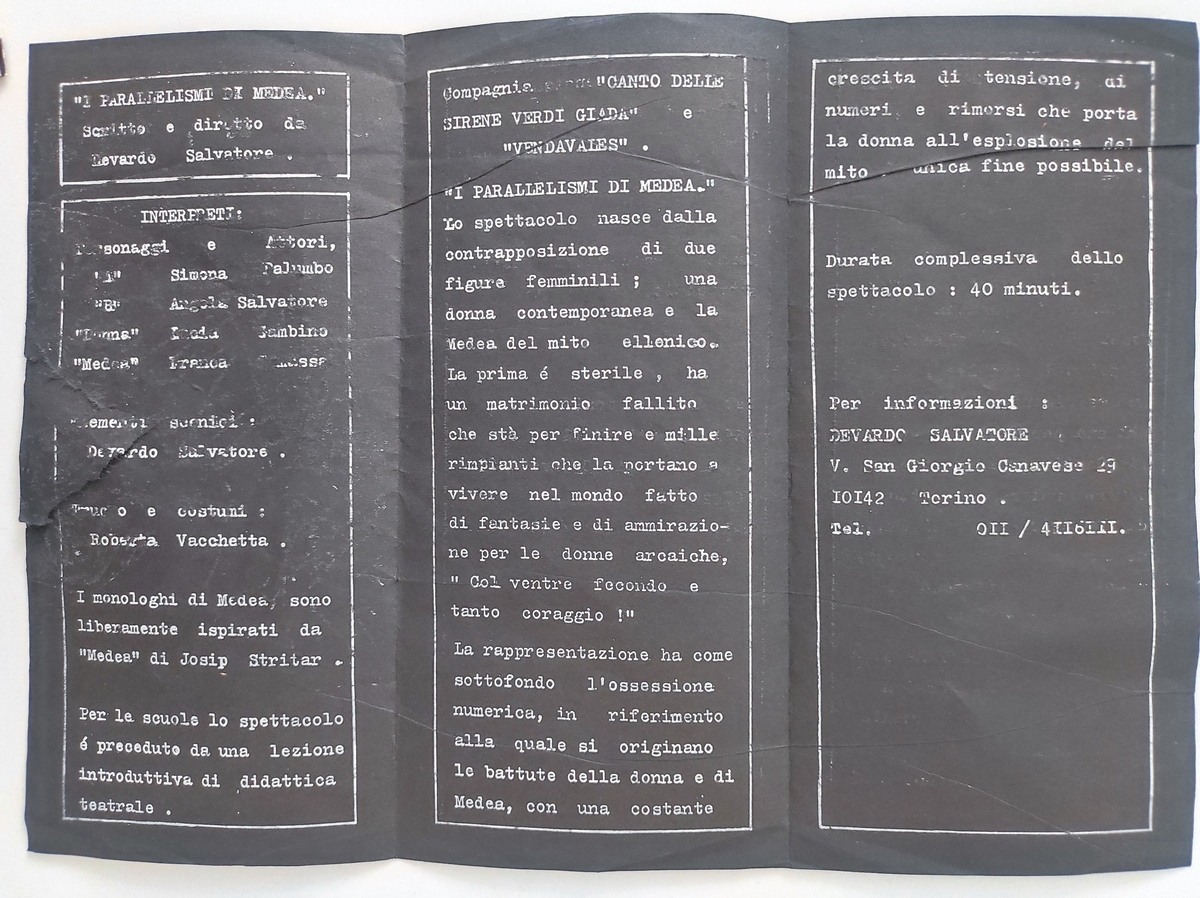 "I PARALLELISMI DI MEDEA."
Scritto e diretto da
Devardo Salvatore .
INTERPRETI:
Personaggi e Attori,
Simona Palumbo
"B" Angela Salvatore
"Donna" Gambino
"Medea" Franca
Elementi scenici :
Devardo Salvatore .
Trucco e costumi :
Roberta Vacchetta .
I monologhi di Medea, sono
liberamente ispirati da
"Medea" di Josip Stritar .
Per le scuole lo spettacolo
é preceduto da una lezione
introduttiva di didattica
teatrale .
Compagnia "CANTO DELLE
SIRENE VERDI GIADA" e
"VENDAVALES" .
"I PARALLELISMI DI MEDEA."
Lo spettacolo nasce dalla
contrapposizione di due
figure femminili ; una
donna contemporanea e la
Medea del mito ellenico.
La prima é sterile , ha
un matrimonio fallito
che stà per finire e mille
rimpianti che la portano a
vivere nel mondo fatto
di fantasie e di ammirazio-
ne per le donne arcaiche,
" Col ventre fecondo e
tanto coraggio !"
La rappresentazione ha come
sottofondo l'ossessione
numerica, in riferimento
alla quale si originano
le battute della donna e di
Medea, con una costante
crescita di tensione, di
numeri e rimorsi che porta
la donna all'esplosione del
mito unica fine possibile.
Durata complessiva dello
spettacolo : 40 minuti.
Per informazioni :
DEVARDO SALVATORE
V. San Giorgio Canavese 29
IOI42 Torino .
Tel. OII / 4II6III.